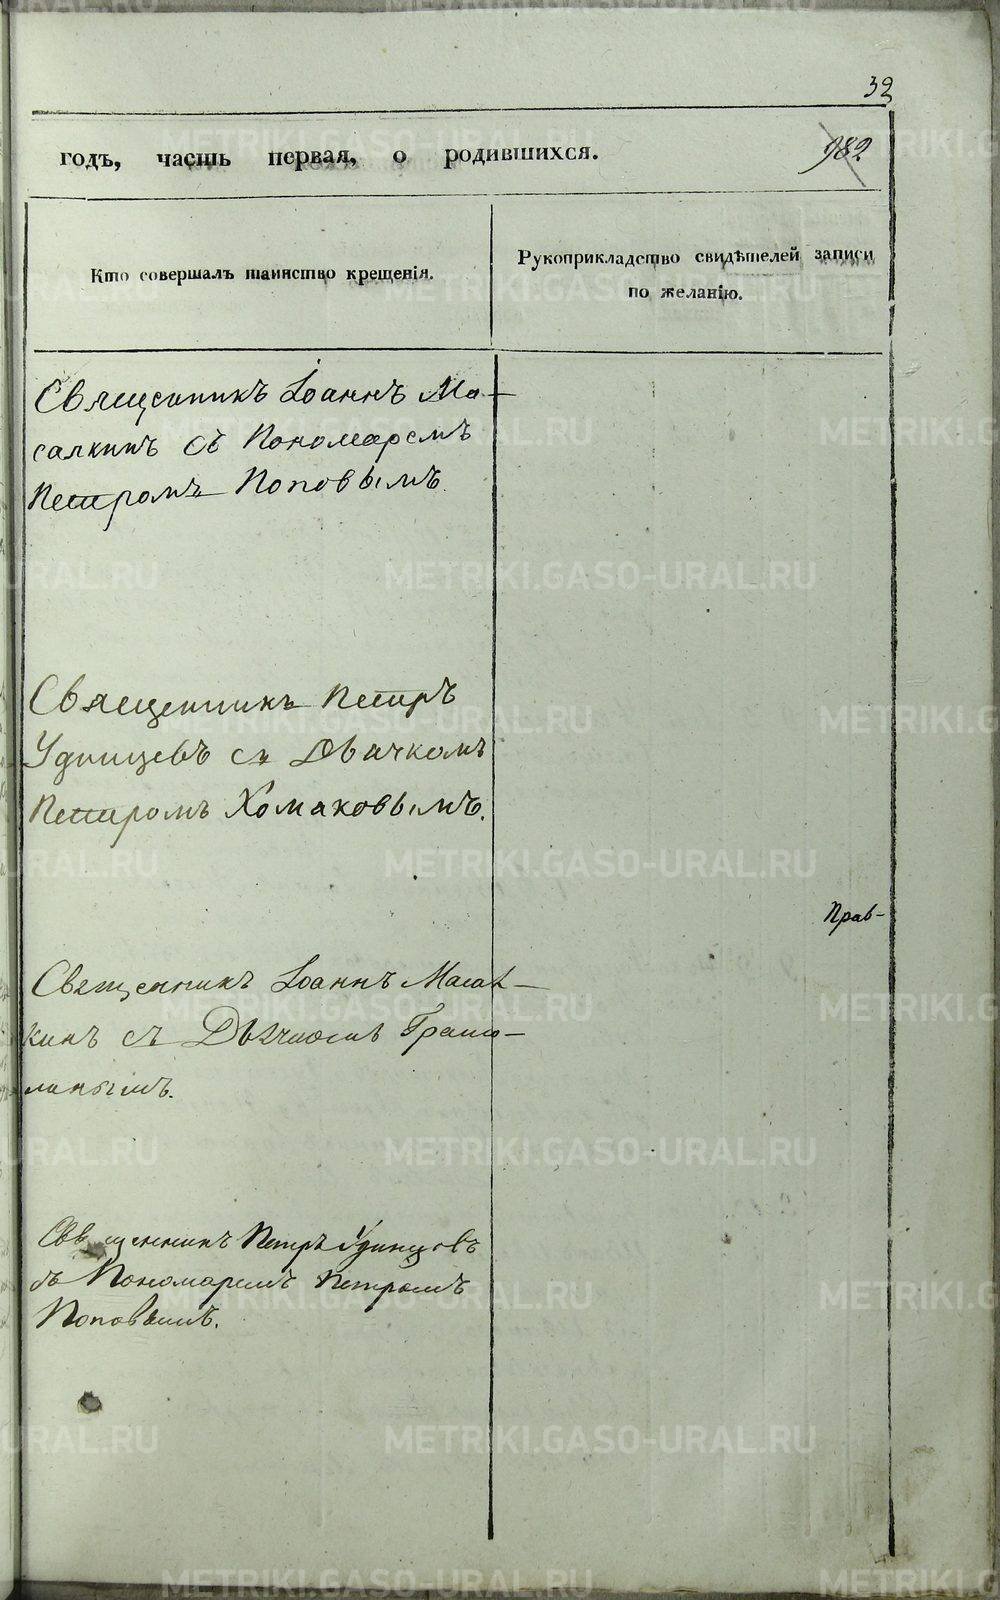 32
годъ, часть первая, о родившихся. 982
Кто совершалъ таинство крещенія.
Рукоприкладство свидѣтелей записи
по желанію.
Священникъ Іоаннъ Ма-
салкинъ съ Пономаремъ
Петромъ Поповымъ.
Священникъ Петръ
Удинцевъ съ Дьячкомъ
Петромъ Хомаковымъ.
Прав-
Священникъ Іоаннъ Масал-
кинъ съ Дьячкомъ
Священникъ Петръ Удинцовъ
съ Пономаремъ Петромъ
Поповымъ.
METRIKI.GASO-URAL.RU